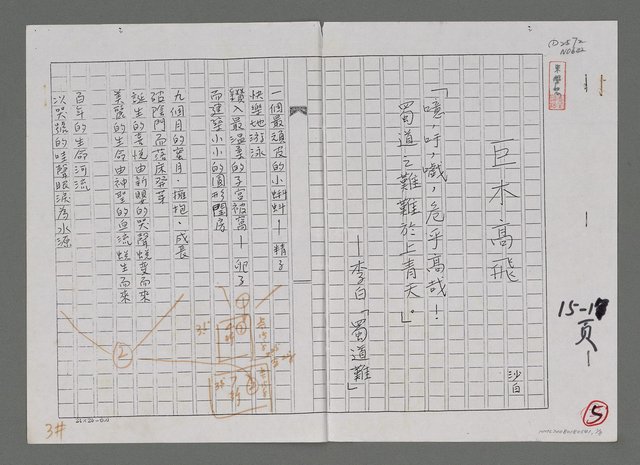 巨木高飛
沙白
「噫,吁,嚱,危乎高哉!
蜀道之難難於上青天。」
—李白「蜀道難」
一個最頑皮的小蝌蚪—精子
快樂地游泳
鑽入最溫柔的子宮被窩—卵子
而建築小小的圓形閨房
九個月的蜜月,擁抱,成長
破陰門而落床發芽
誕生的喜悅由新嬰的哭聲蛻變而來
美麗的生命由神聖的血流蛻生而來
百年的生命河流
以哭聲的哇聲眼淚為水源
15-17
頁一
⑤
②
3#
24×20=DN